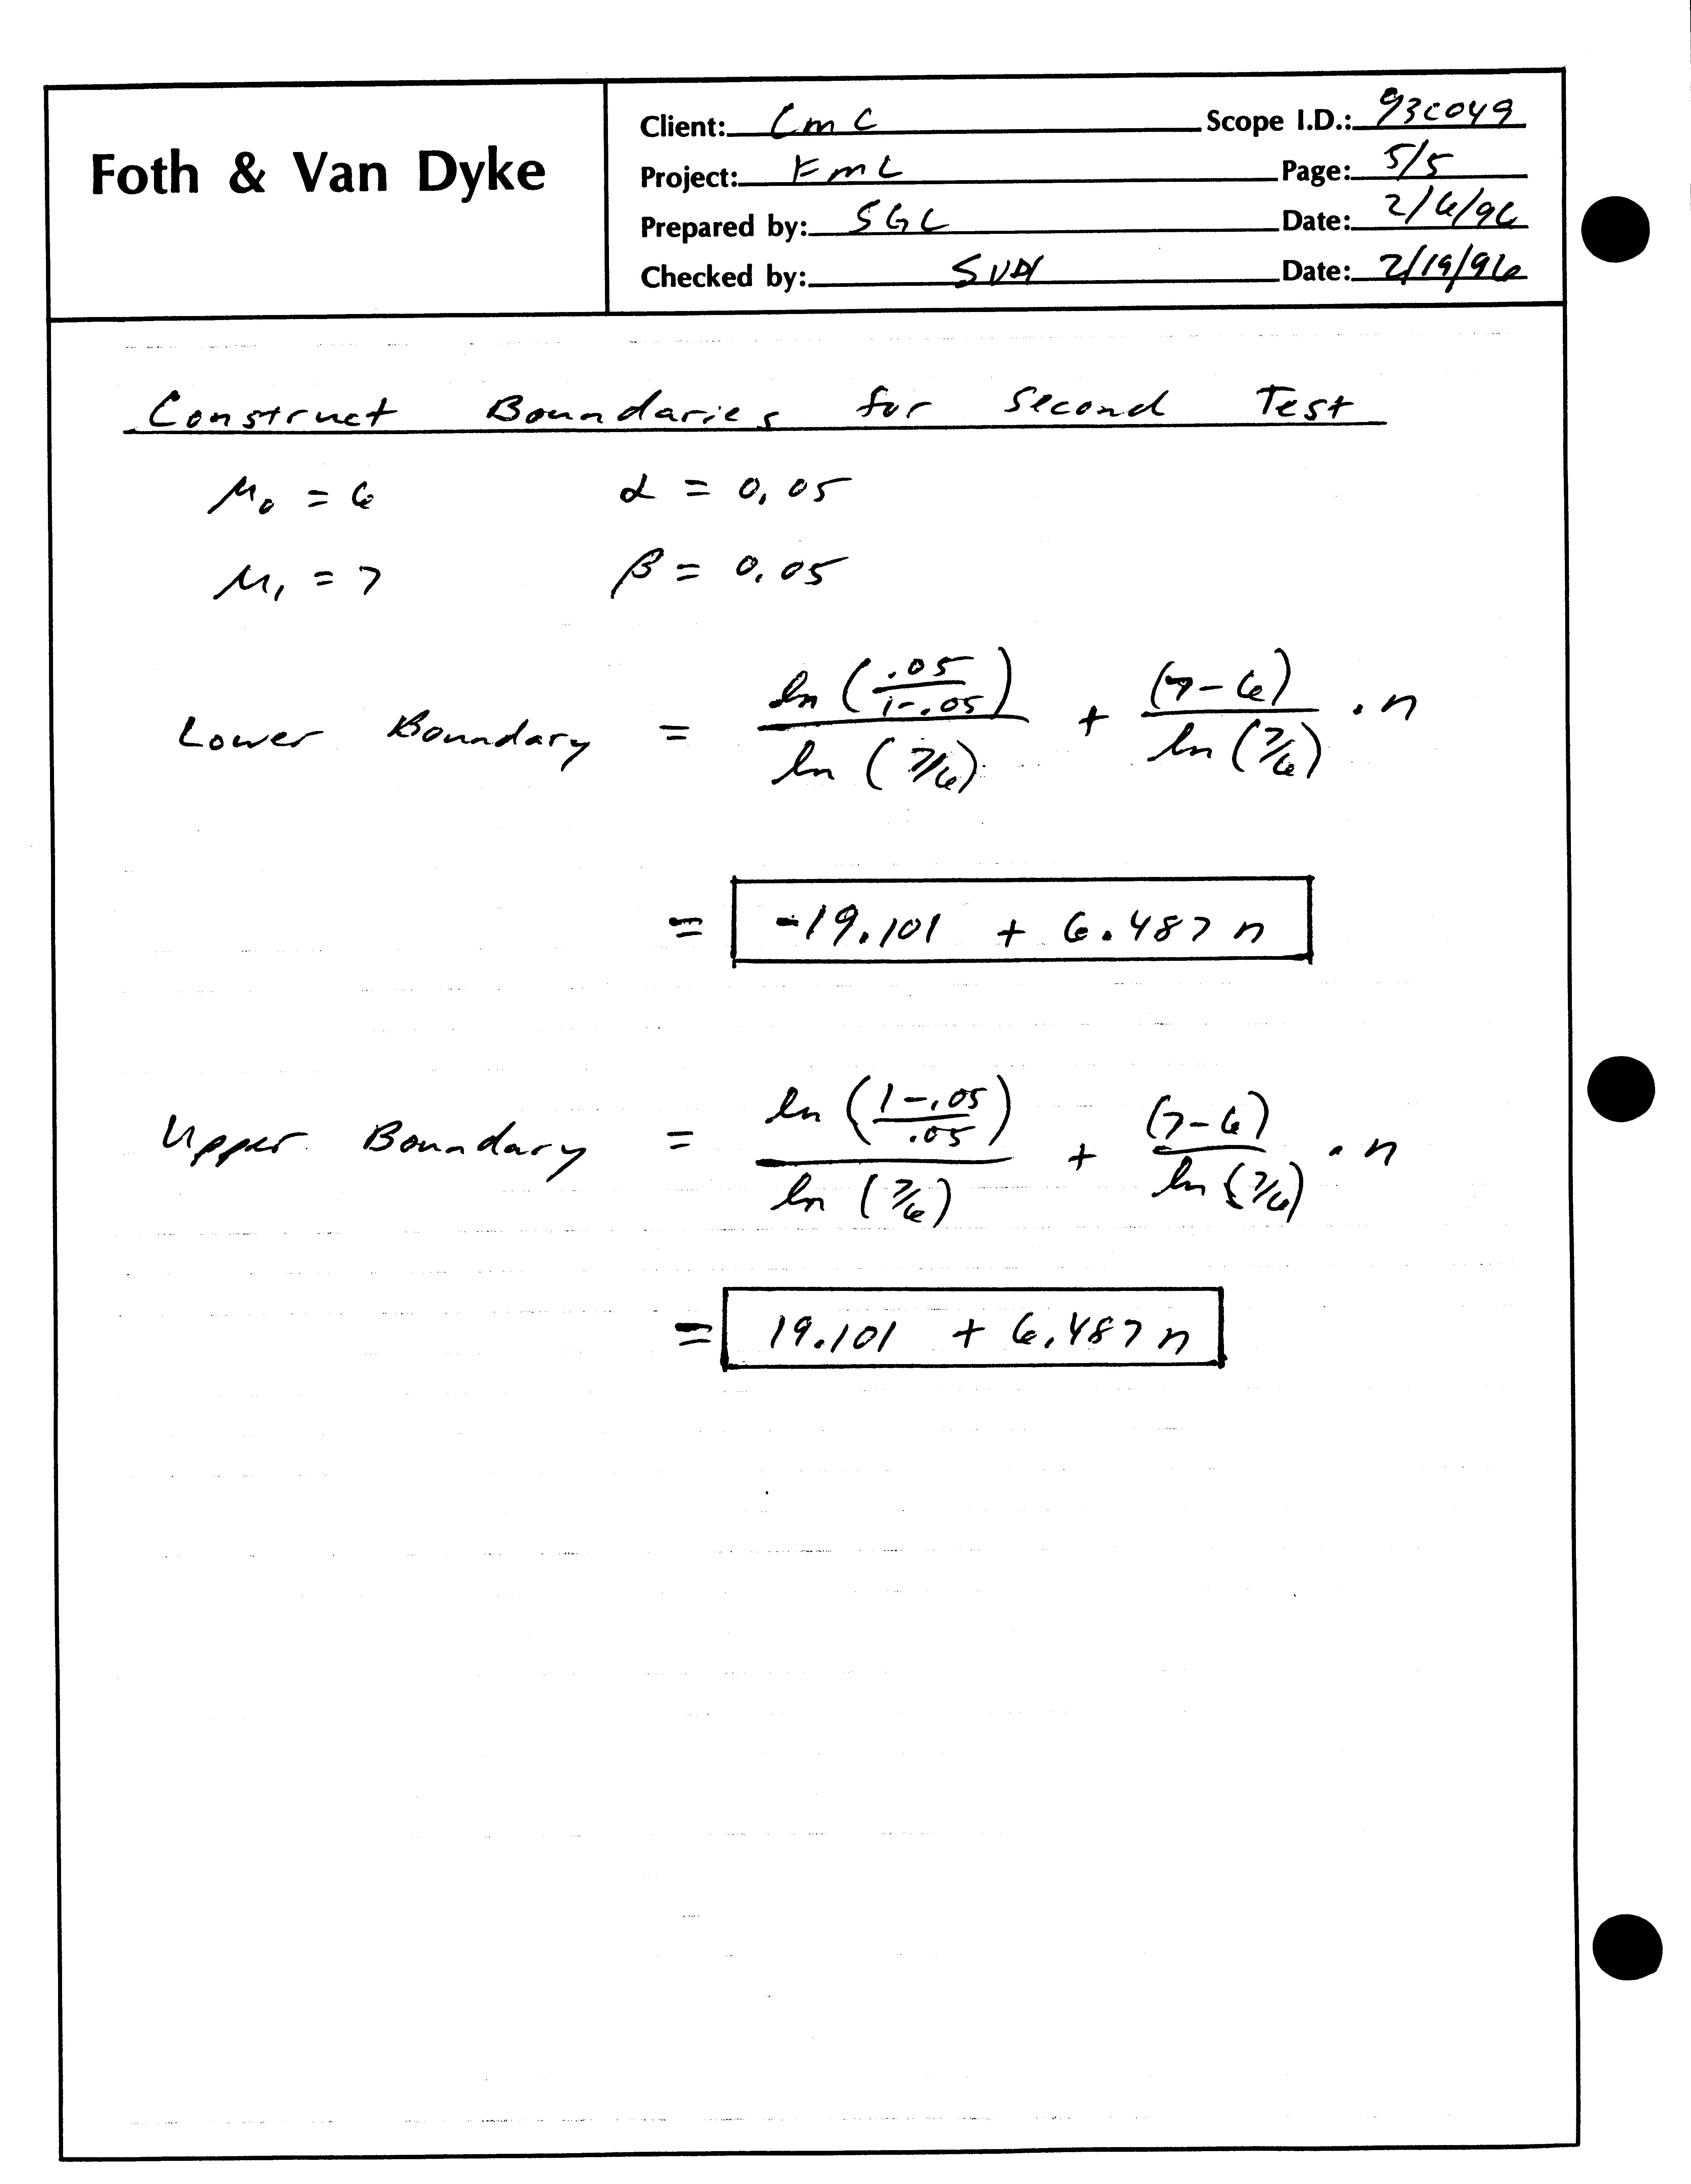 Foth & Van Dyke
Client: CMC Scope I.D.: 93C049
Project: FML Page: 5/5
Prepared by: SGL Date: 2/6/96
Checked by: Date: 2/19/96
Construct Boundaries for Second Test
μ₀ = 6 α = 0.05
μ₁ = 7 β = 0.05
Lower Boundary = ln (.05/1-.05) / ln (7/6) + (7-6) / ln (7/6) · n
= -19.101 + 6.487 n
Upper Boundary = ln (1-.05/.05) / ln (7/6) + (7-6) / ln (7/6) · n
= 19.101 + 6.487 n